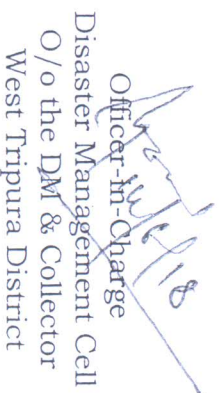 Officer-In-Charge
Disaster Management Cell
O/o the DM & Collector
West Tripura District